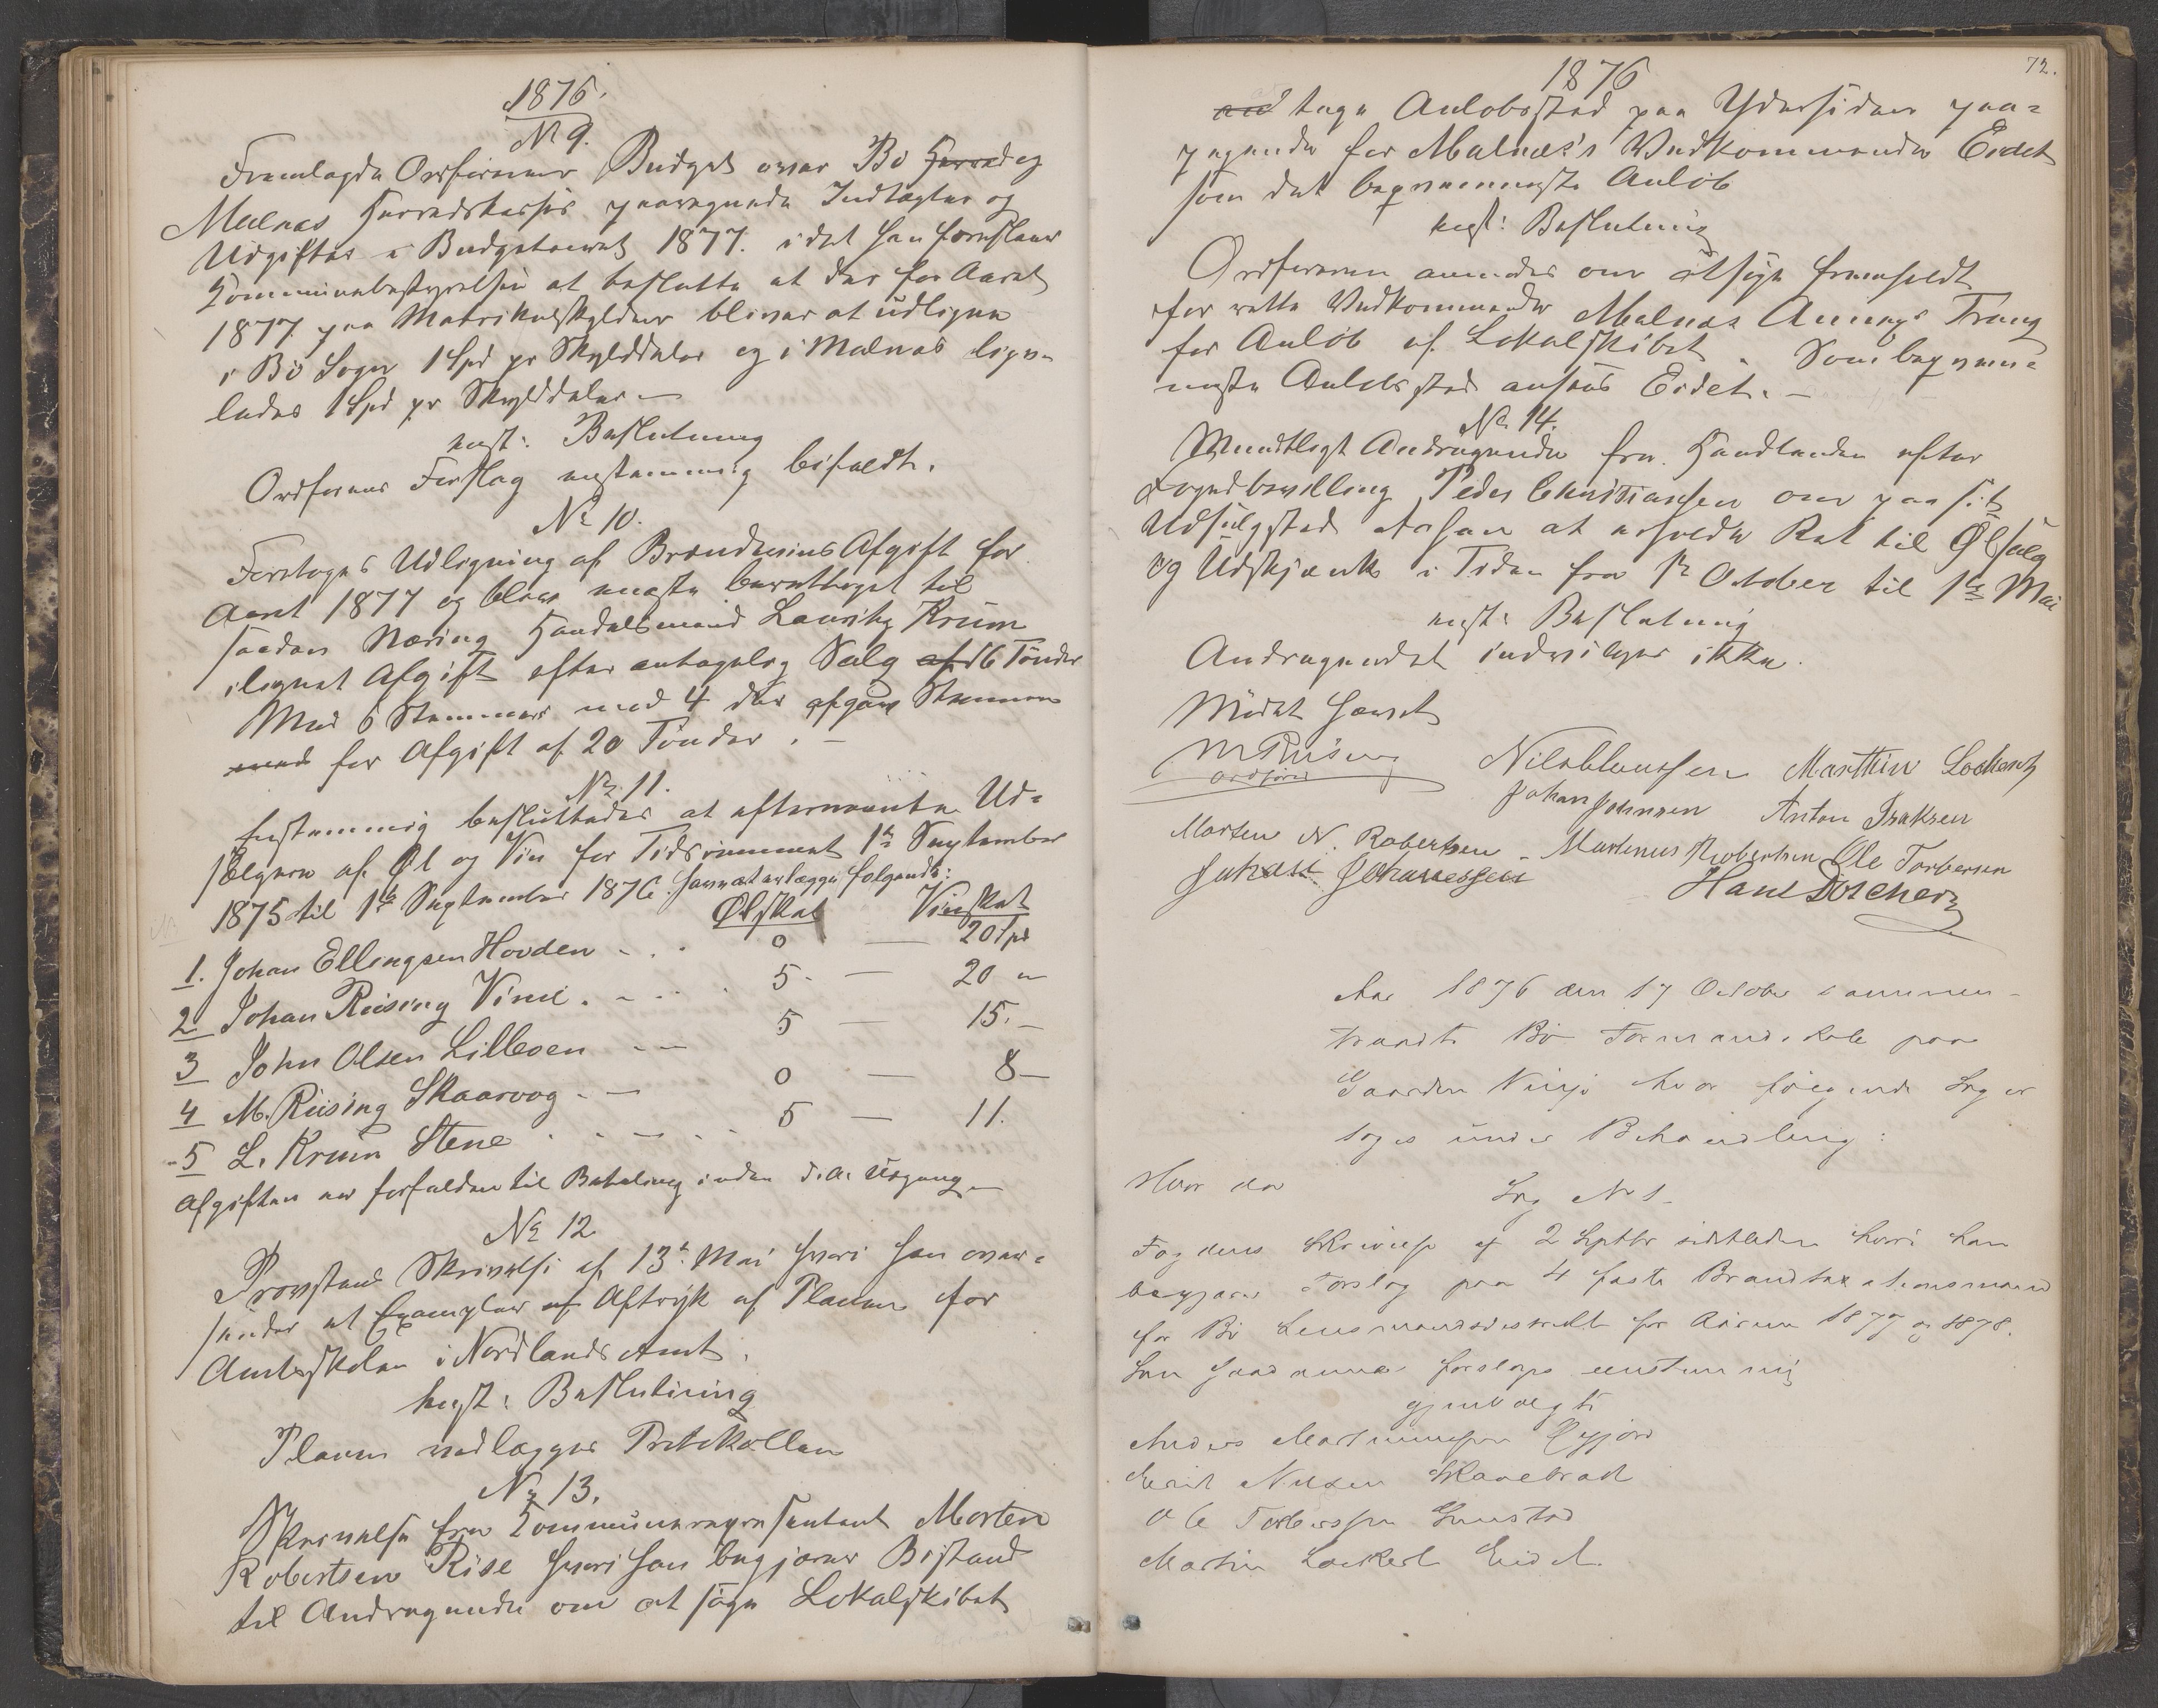 1876.
No 9.
Fremlagde Ordføreren Budget over Bö Herred og
Malnæs Herredskasses paaregnede Indtægter og
Udgifter i Budgetaaret 1877. idet han foreslaar
Kommunebestyrelsen at beslutte at der for Aaret
1877 paa Matrikulskylden bliver at udligne
i Bö Sogn 1 Spd pr Skylddaler og i Malnæs lige-
ledes 1 Spd pr Skylddaler. —
enst: Beslutning
Ordførerens Forslag enstemmig bifaldt.
No 10.
Foretoges Udligning af Brændevins Afgift for
Aaret 1877 og blev eneste berettiget til
saadan Næring Handelsmand Lauritz Krüm
ilignet Afgift efter antagelig Salg af 16 Tönder
Med 6 Stemmer mod 4 der afgav Stemmer
med for Afgift af 20 Tönder. —
No 11.
Enstemmig besluttedes at efternævnte Ud-
sælgere af Øl og Vin for Tidsrummet 1ste September
1875 til 1ste September 1876 have at erlægge følgende:
Ølskat Vinskat
1. Johan Ellingsen Hovden - . . 0 — 20 Spd
2 Johan Rüsing Vinje . - . . . 5. — 20 "
3 John Olsen Lilleøen - — 5 — 15. —
4 M. Rüsing Skaarvog - — 0 — 8 —
5 L. Krüm Stene . . - — . . 5 — 11.
Afgiften er forfalden til Betaling inden d. A. Udgang —
No 12
Provstens Skrivelse af 13de Mai hvori han over-
sender et Exemplar af Aftryk af Planen for
Amtsskolen i Nordlands Amt.
enst: Beslutning
Planen vedlægges Protokollen
No 13.
Skrivelse fra Kommunerepresentant Morten
Robertsen Rise hvori han begjærer Bistand
til Andragende om at søge Lokalskibet
72.
1876
tage Anlöbssted paa Ydersiden paa-
pegende for Malnæs's Vedkommende Eidet
som det beqvemmeste Anlöb
enst: Beslutning
Ordføreren anmodes om at søge fremholdt
for rette Vedkommende Malnæs Annex Trang
for Anlöb af Lokalskibet. Som beqvem-
meste Anlöbssted ansees Eidet. —
No 14.
Mundtligt Andragende fra Handlende efter
Fogedbevilling Peder Christiansen om paa sit
Udsalgssted at erholde Ret til Ølsalg
og Udskjænk i Tiden fra 1ste October til 1ste Mai
enst: Beslutning
Andragendet indvilges ikke.
Mödet hævet
M Rüsing
ordfører
Nils Claussen Marthin Lockertz
Johan Johnsen Anton Isaksen
Morten N. Robertsen - Martinus Robertsen Ole Torbersen
Johan Johannessen
Hans Döscher
Aar 1876 den 17 October sammen-
traadte Bö Formandskab paa
Gaarden Vinje hvor følgende Sager
toges under Behandling:
Hvor da
Sag No 1.
Fogdens Skrivelse af 2 Septbr sidstleden hvori han
begjærer Forslag paa 4 faste Brandtaxationsmænd
for Bö Lensmandsdistrikt for Aarene 1877 og 1878.
Som saadanne forsloges eenstemmig
gjenvalgte
Anders Martinussen
Nilsen
Ole Torbersen Guustad
Martin Lockert Eidet